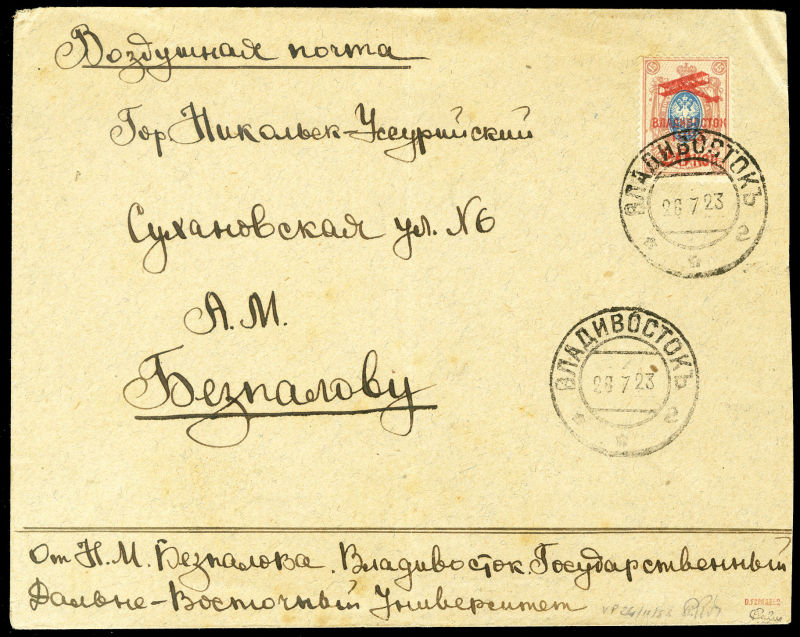 Воздушная почта
Гор. Никольск-Уссурийский
Сухановская ул. №6
А.М.
Безпалову
15 15
ВЛАДИВОСТОК
ВЛАДИВОСТОКЪ
26 7 23
г
ВЛАДИВОСТОКЪ
26 7 23
г
От Н.М. Безпалова. Владивосток Государственный
Дальне-Восточный Университет